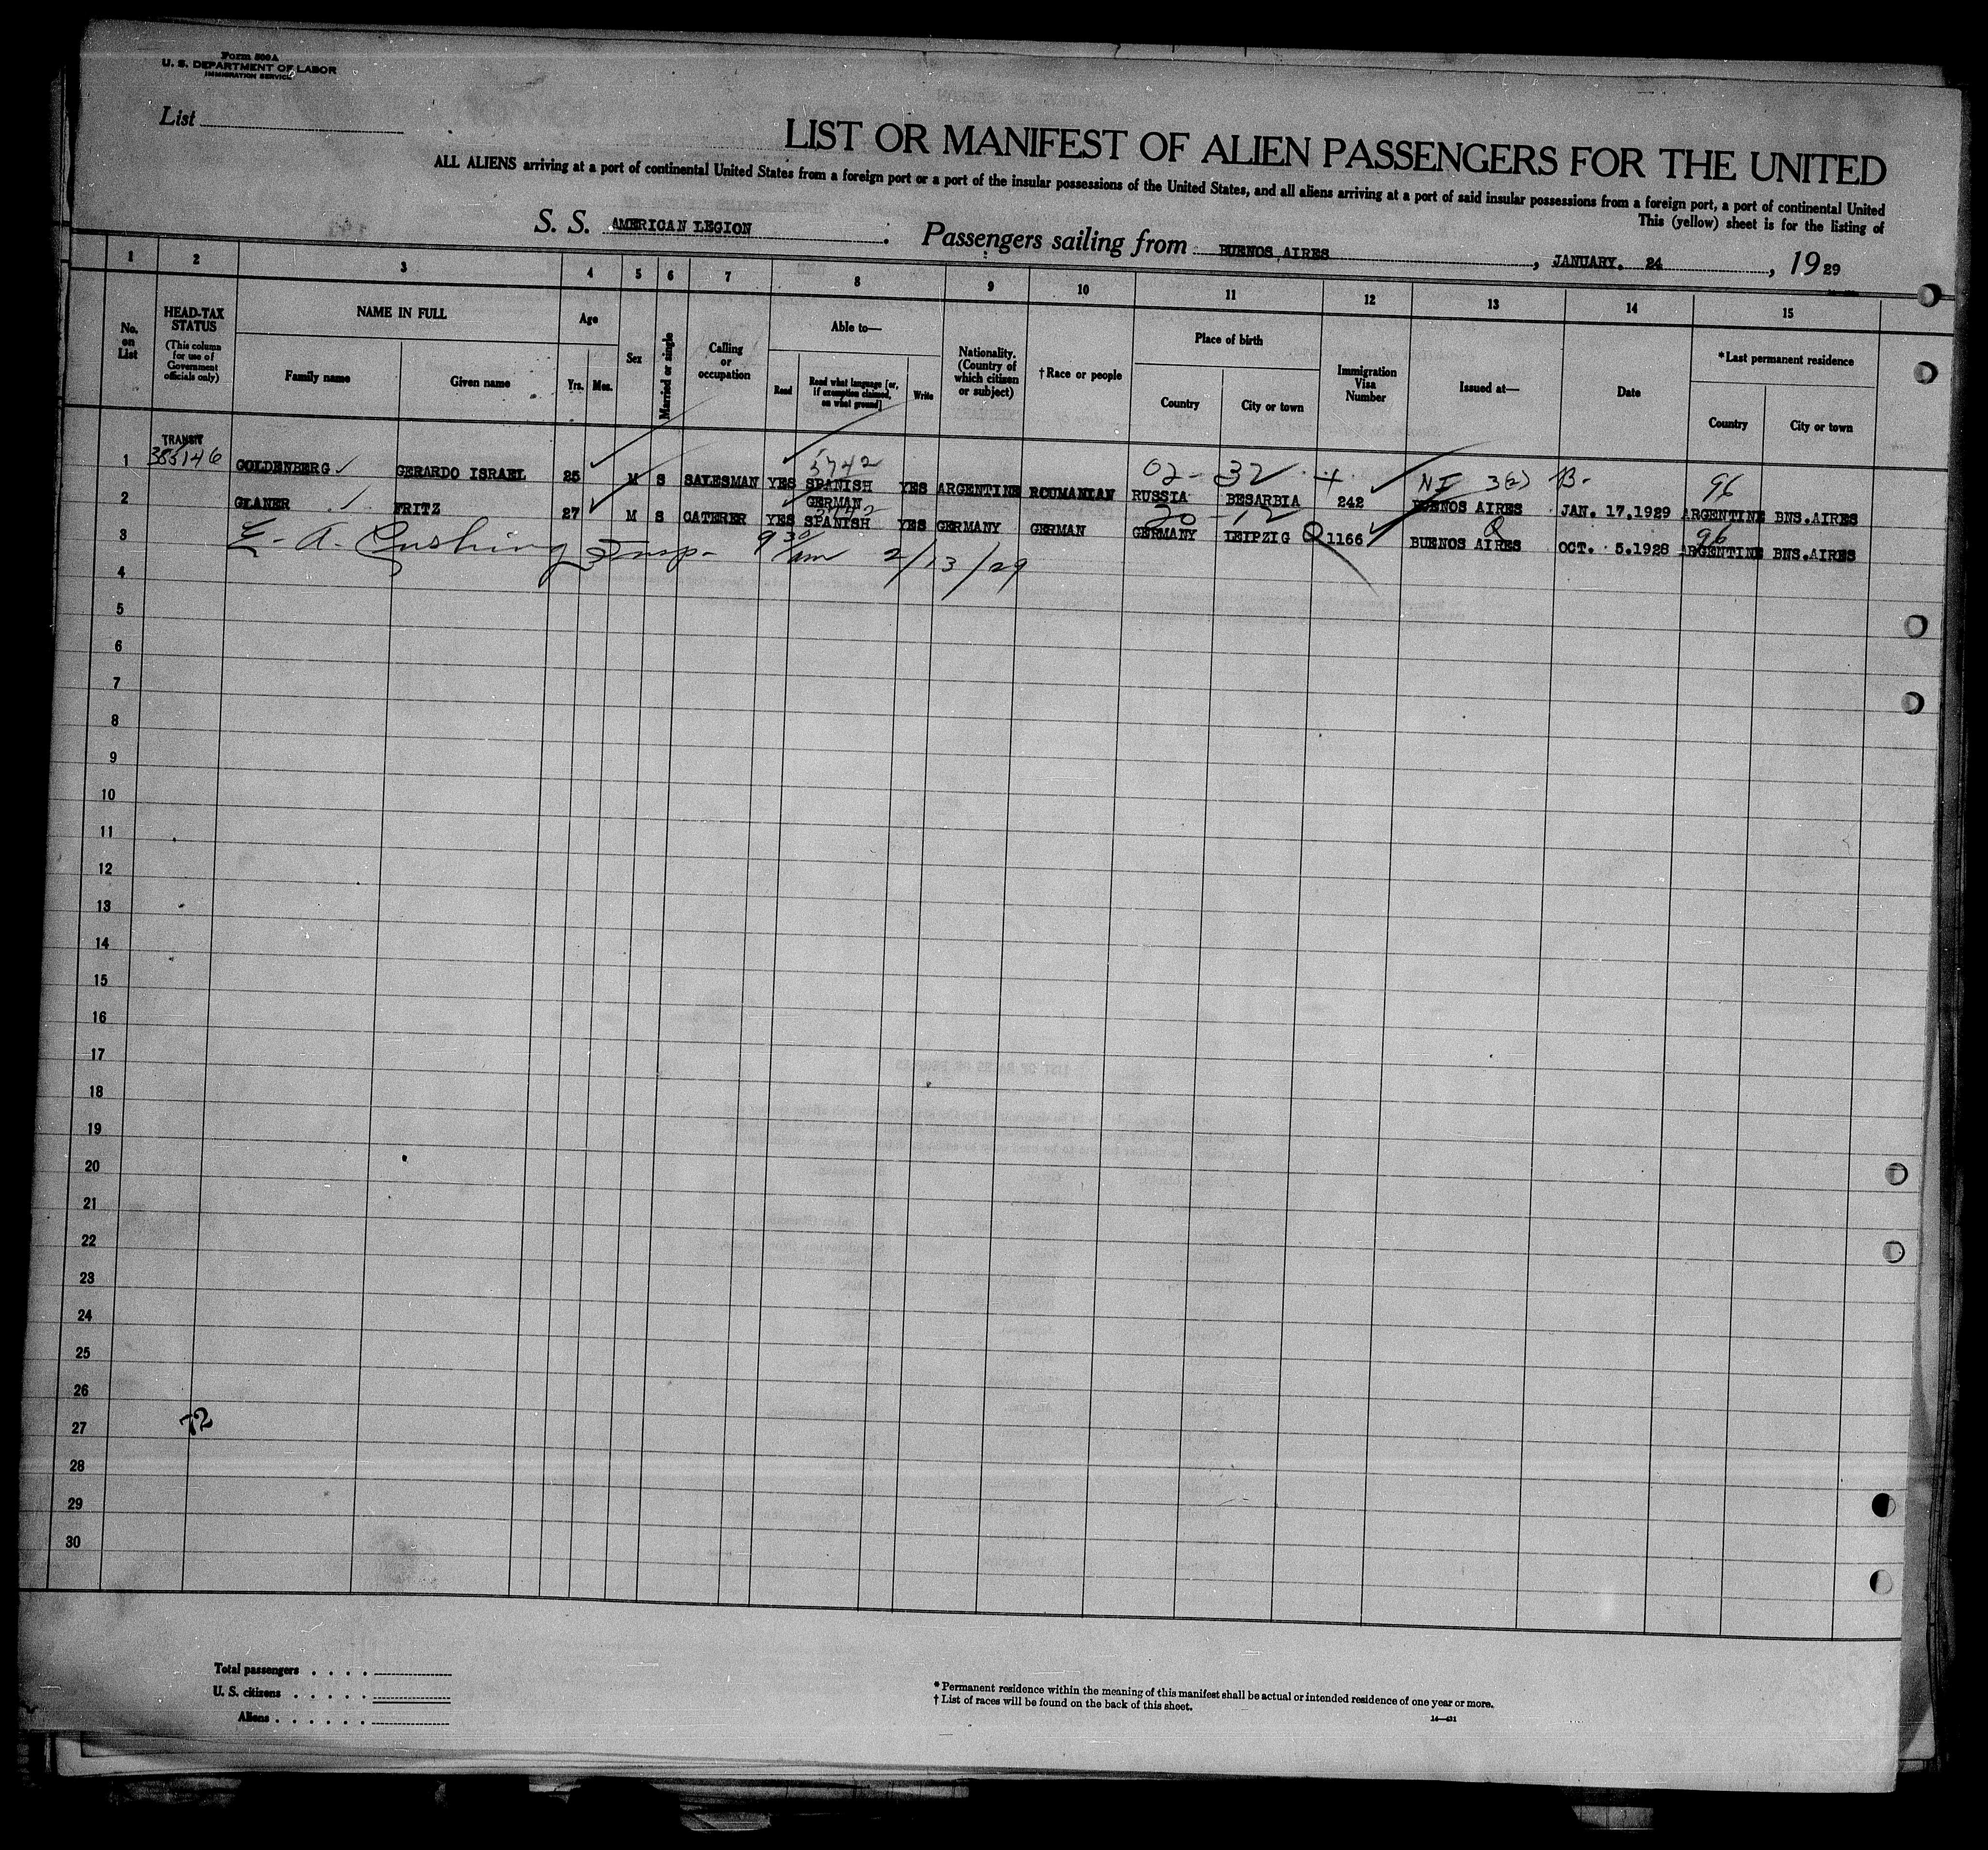 Form 500A
U. S. DEPARTMENT OF LABOR
IMMIGRATION SERVICE
List
LIST OR MANIFEST OF ALIEN PASSENGERS FOR THE UNITED
ALL ALIENS arriving at a port of continental United States from a foreign port or a port of the insular possessions of the United States, and all aliens arriving at a port of said insular possessions from a foreign port, a port of continental United
This (yellow) sheet is for the listing of
S. S. AMERICAN LEGION. Passengers sailing from BUENOS AIRES, JANUARY. 24, 1929
1 2 3 4 5 6 7 8 9 10 11 12 13 14 15
No. on List
HEAD-TAX STATUS (This column for use of Government officials only)
NAME IN FULL
Family name Given name
Age
Yrs. Mos.
Sex
Married or single
Calling or occupation
Able to—
Read Read what language [or, if exemption claimed, on what ground] Write
Nationality. (Country of which citizen or subject)
†Race or people
Place of birth
Country City or town
Immigration Visa Number
Issued at—
Date
*Last permanent residence
Country City or town
TRANSIT 5742 02-32 + NI 3(2) B- 96
1 355146 GOLDENBERG GERARDO ISRAEL 25 M S SALESMAN YES SPANISH YES ARGENTINE ROUMANIAN RUSSIA BESARBIA 242 BUENOS AIRES JAN. 17.1929 ARGENTINE BNS.AIRES
2 GLANER FRITZ 27 M S CATERER YES GERMAN SPANISH YES GERMANY GERMAN GERMANY LEIPZIG Q1166 BUENOS AIRES OCT. 5.1928 ARGENTINE BNS.AIRES
5742 Q 96
3 E. A. Cushing Insp- 9 30/am 2/13/29
4
5
6
7
8
9
10
11
12
13
14
15
16
17
18
19
20
21
22
23
24
25
26
27 72
28
29
30
Total passengers . . . .
U. S. citizens . . . . .
Aliens . . . . . .
* Permanent residence within the meaning of this manifest shall be actual or intended residence of one year or more.
† List of races will be found on the back of this sheet.
14—431